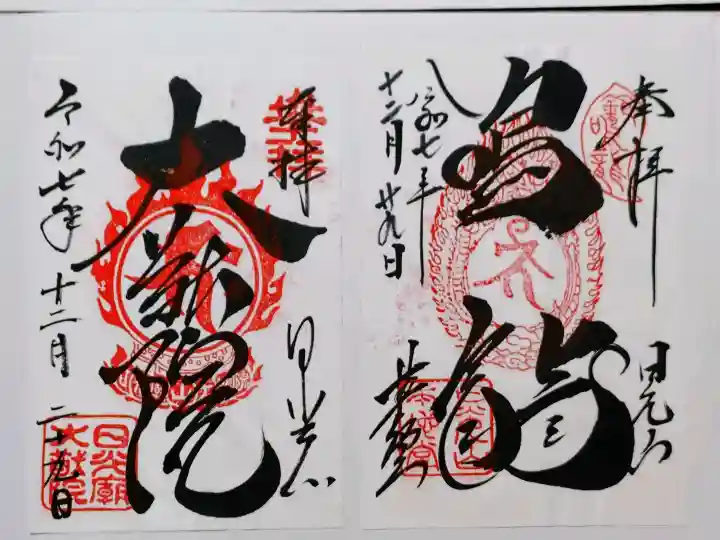 奉拝
日光山
鳴龍
令和七年
十二月廿九日
奉拝
日光山
大猷院
令和七年十二月二十九日
日光廟
大猷院